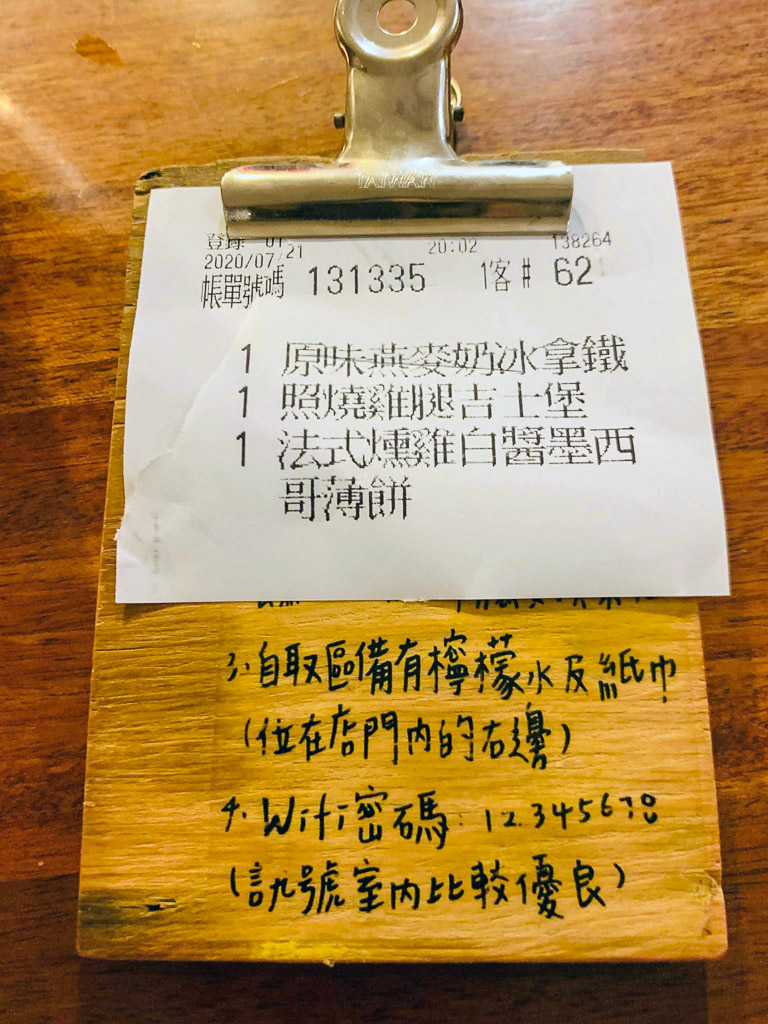 TAIWAN
登錄 01
2020/07/21 20:02 138264
帳單號碼 131335 1客# 62
1 原味燕麥奶冰拿鐵
1 照燒雞腿吉士堡
1 法式燻雞白醬墨西
哥薄餅
3. 自取區備有檸檬水及紙巾
(位在店門內的右邊)
4. Wifi密碼: 12345678
(訊號室內比較優良)